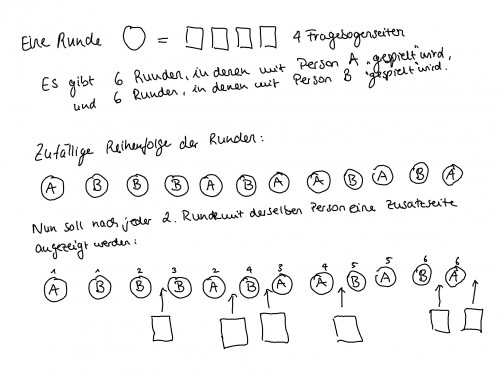 Eine Runde = 4 Fragebogenseiten
Es gibt 6 Runden, in denen mit Person A "gespielt" wird,
und 6 Runden, in denen mit Person B "gespielt" wird.
Zufällige Reihenfolge der Runden:
A B B B A B A A B A B A
Nun soll nach jeder 2. Runde mit derselben Person eine Zusatzseite
angezeigt werden:
1 1 2 3 2 4 3 4 5 5 6 6
A B B B A B A A B A B A